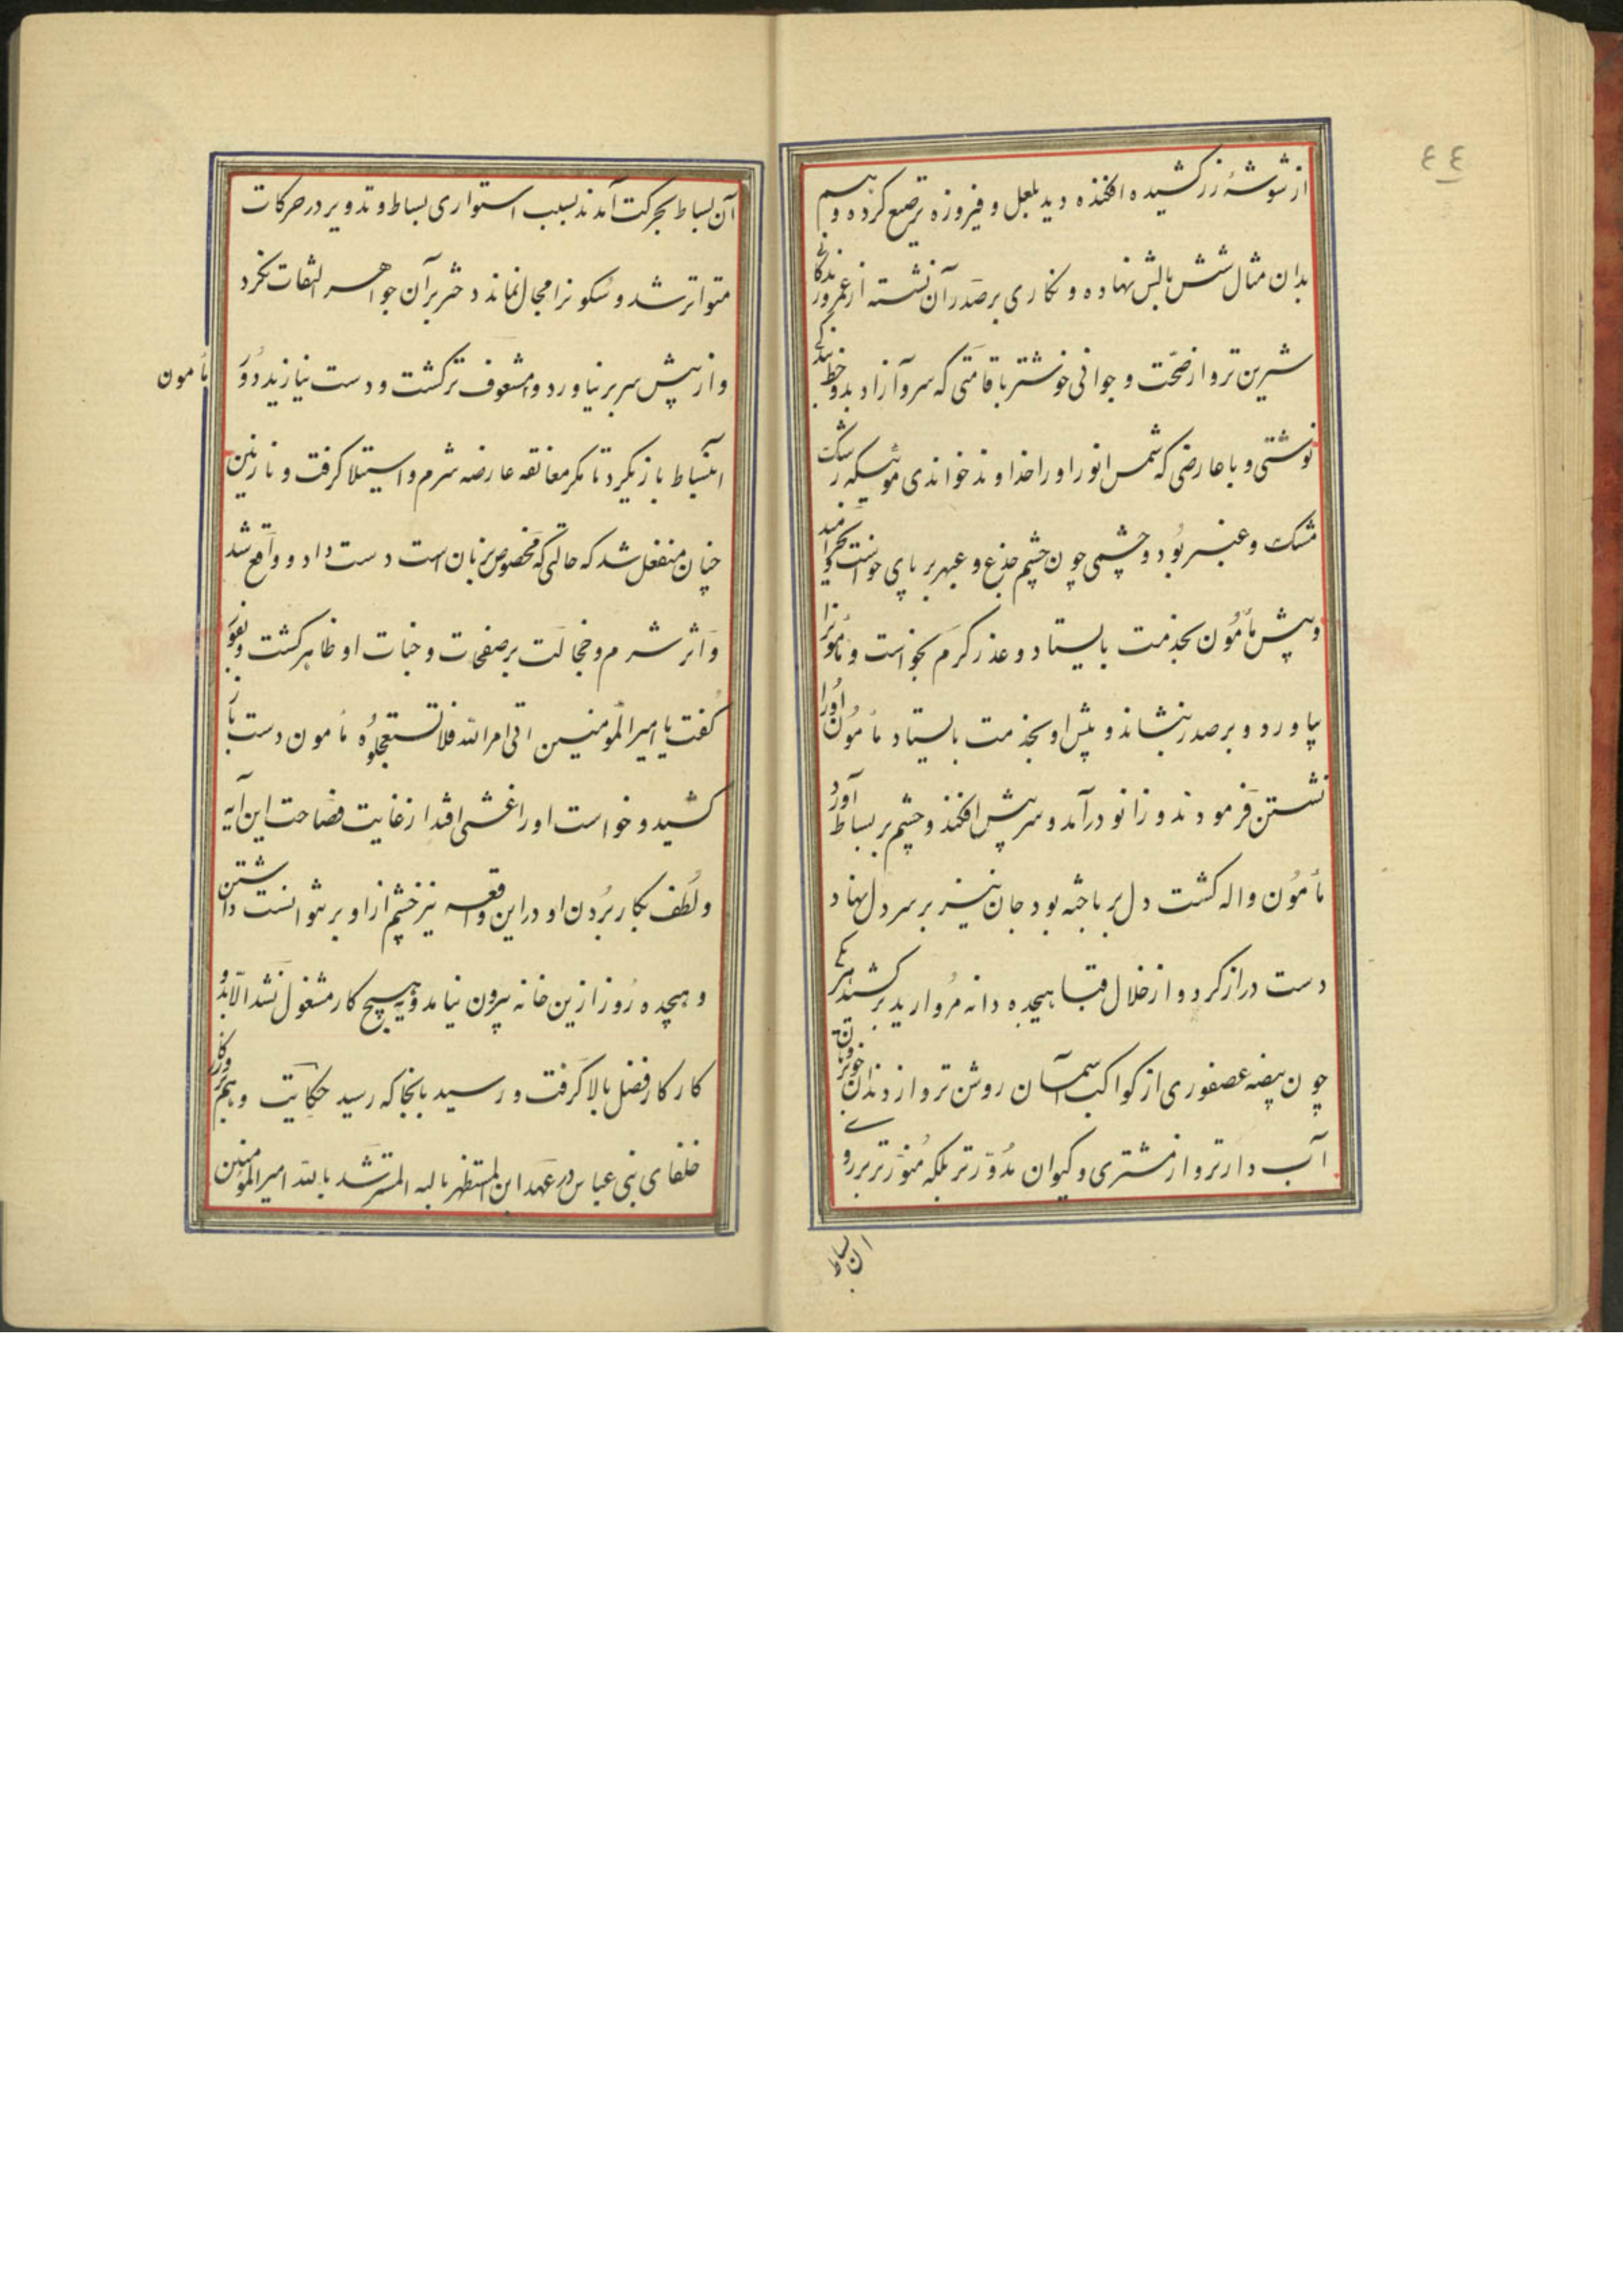 ٤٤
از شوشهٔ زر کشیده افکنده دید بلعل و فیروزه ترصیع کرده و هم
بدان مثال شش بالش نهاده و نکاری بر صدر آن نشسته از عمر و زندکانی
شیرین تر و از صحّت و جوانی خوشتر با قامتی که سرو آزاد بدو خط بندکی
نوشتی و با عارضی که شمس انور او را خداوند خواندی موئیکه رشک
مشک و عنبر بُود و چشمی چون چشم جزع و عبهر بر پای خواست و بخرامید
و پیش مأمُون بخدمت بایستاد و عذر کرم بخواست و مأمونرا
بیاورد و بر صدر بنشاند و پیش او بخدمت بایستاد مأمُون اُورا
نشستن فرمودند و زانو درآمد و سر پیش افکند و چشم بر بساط آورد
مأمُون واله کشت دل بر باخته بود جان نیز بر سر دل نهاد
دست دراز کرد و از خلال قبا هیجده دانه مُروارید برکشید هر یکی
چون بیضه عصفوری از کواکب آسمان روشن تر و از دندان خوبرویان
آب دارتر و از مشتری و کیوان مدُوّرتر بلکه مُنوّرتر بر روی
ان بساط
آن بساط بحرکت آمدند بسبب استواری بساط و تدویر در حرکات
متواتر شد و سُکونرا مجال نماند دختر بر آن جواهر التفات نکرد
و از پیش سر بر نیاورد و مشعوف تر کشت و دست نیازید و دَر
مأمون
انبساط باز بکرد تا مکر معانقه عارضه شرم و استیلا کرفت و نازنین
چنان منفعل شد که حالتی که مخصوص بزنان است دست داد و واقع شد
وَ اثر شرم و خجالت بر صفحات و جنات او ظاهر کشت و بفور
کُفت یا امیرالمُومنین اتی امرالله فلا تستعجلُوُه مأمون دست باز
کشید و خواست اورا غشی افتد از غایت فصاحت این آیه
و لُطف بکار بُردن او در این واقعه نیز چشم از او بر نتوانست داشتن
و هیجده رُوز از ین خانه بیرون نیامد و بهیچ کار مشغول نشد الا بدُو
کار کار فضل بالا کرفت و رسید بانجا که رسید حکایت و هم در روزکار
خلفای بنی عباس در عَهد ابن المستظهر بالله المسترشد بالله امیرالمُؤمنین